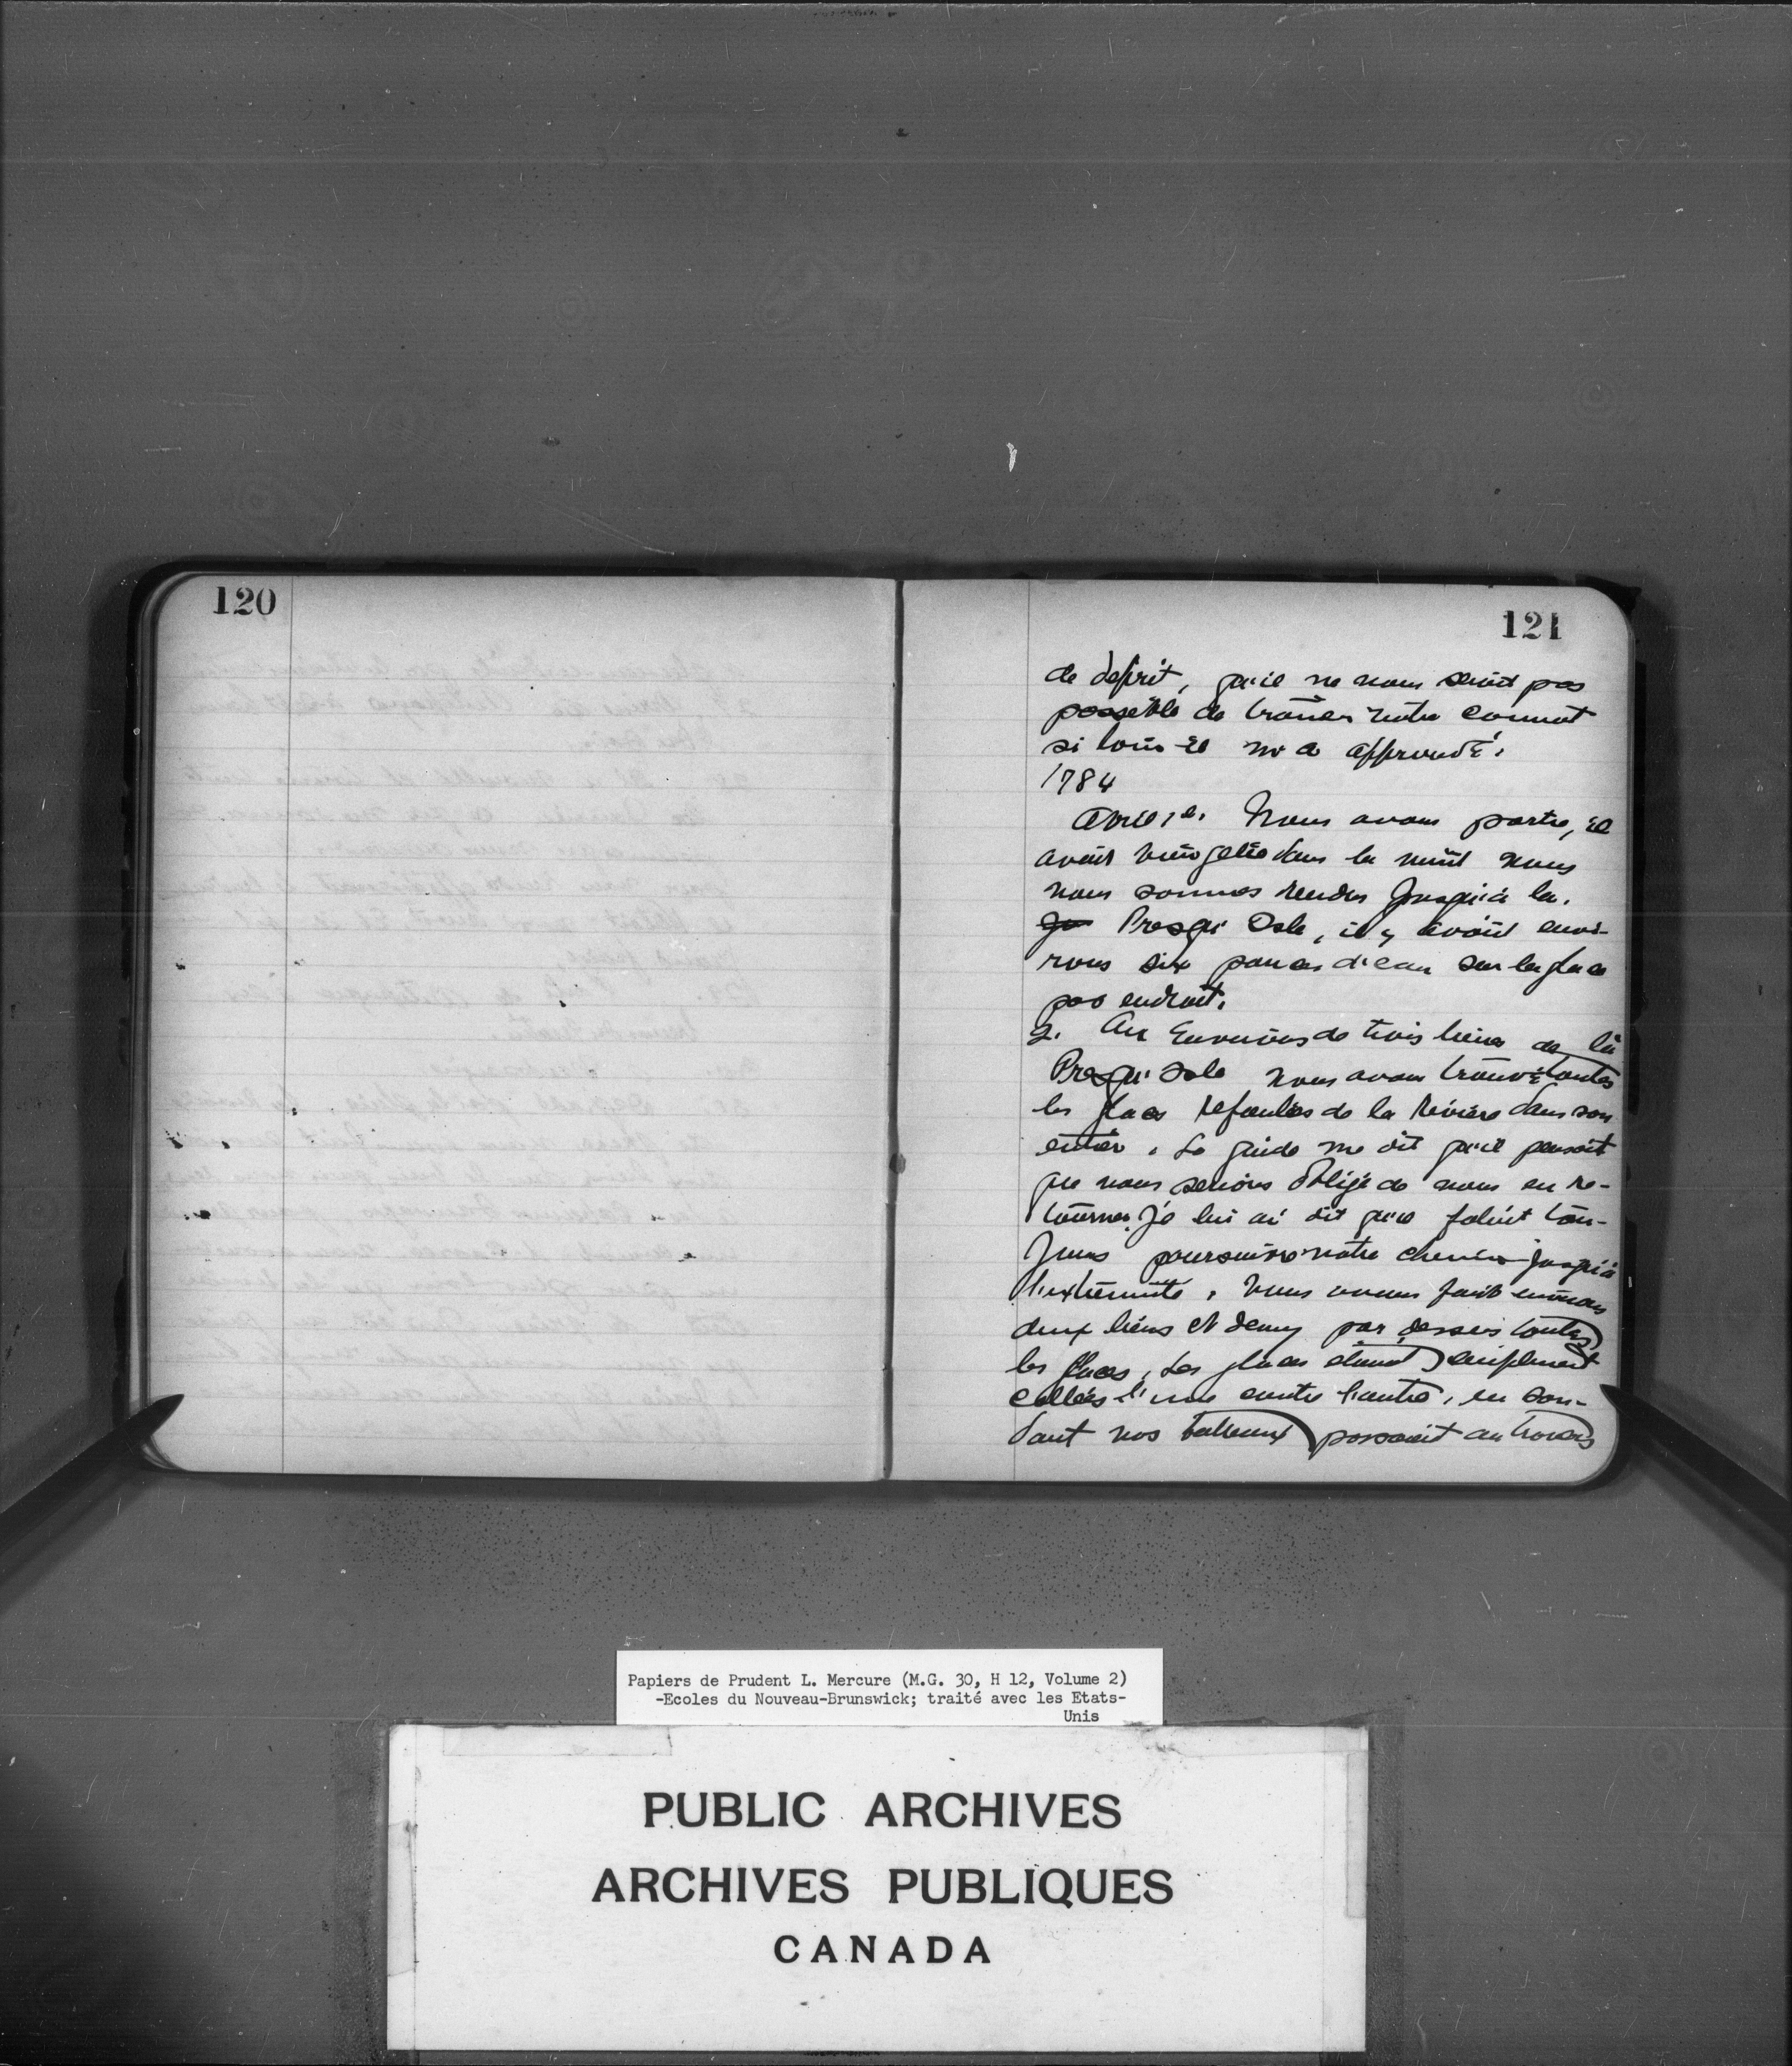 120
121
de depit, qu'il ne nous serait pas
possible de trainer notre cannot
si loin il m'a approuvé.
1784
Avril, 1. Nous avons partie, il
avait bien gelée dans la nuit nous
nous sommes rendus jusqu'à la.
Presqu' Isle, il y avait envi-
rons six pouces d'eau sur la glace
par endroit.
2. Au Environs de trois lieues de la
Presqu' Isle nous avons trouvé toutes
les glaces refoulées de la Rivière dans son
entier. Le guide me dit qu'il pensait
que nous serions obligé de nous en re-
tourner. Je lui ai dit qu'il falait tou-
jours poursuivre notre chemin jusqu'à
l'extremité. Nous avons fait environs
deux lieus et demy par dessus toutes
les glaces, les glaces étaient simplement
collées l'une contre l'autre, en son-
dant nos batteaux passait au travers
Papiers de Prudent L. Mercure (M.G. 30, H 12, Volume 2)
-Ecoles du Nouveau-Brunswick; traité avec les Etats-
Unis
PUBLIC ARCHIVES
ARCHIVES PUBLIQUES
CANADA